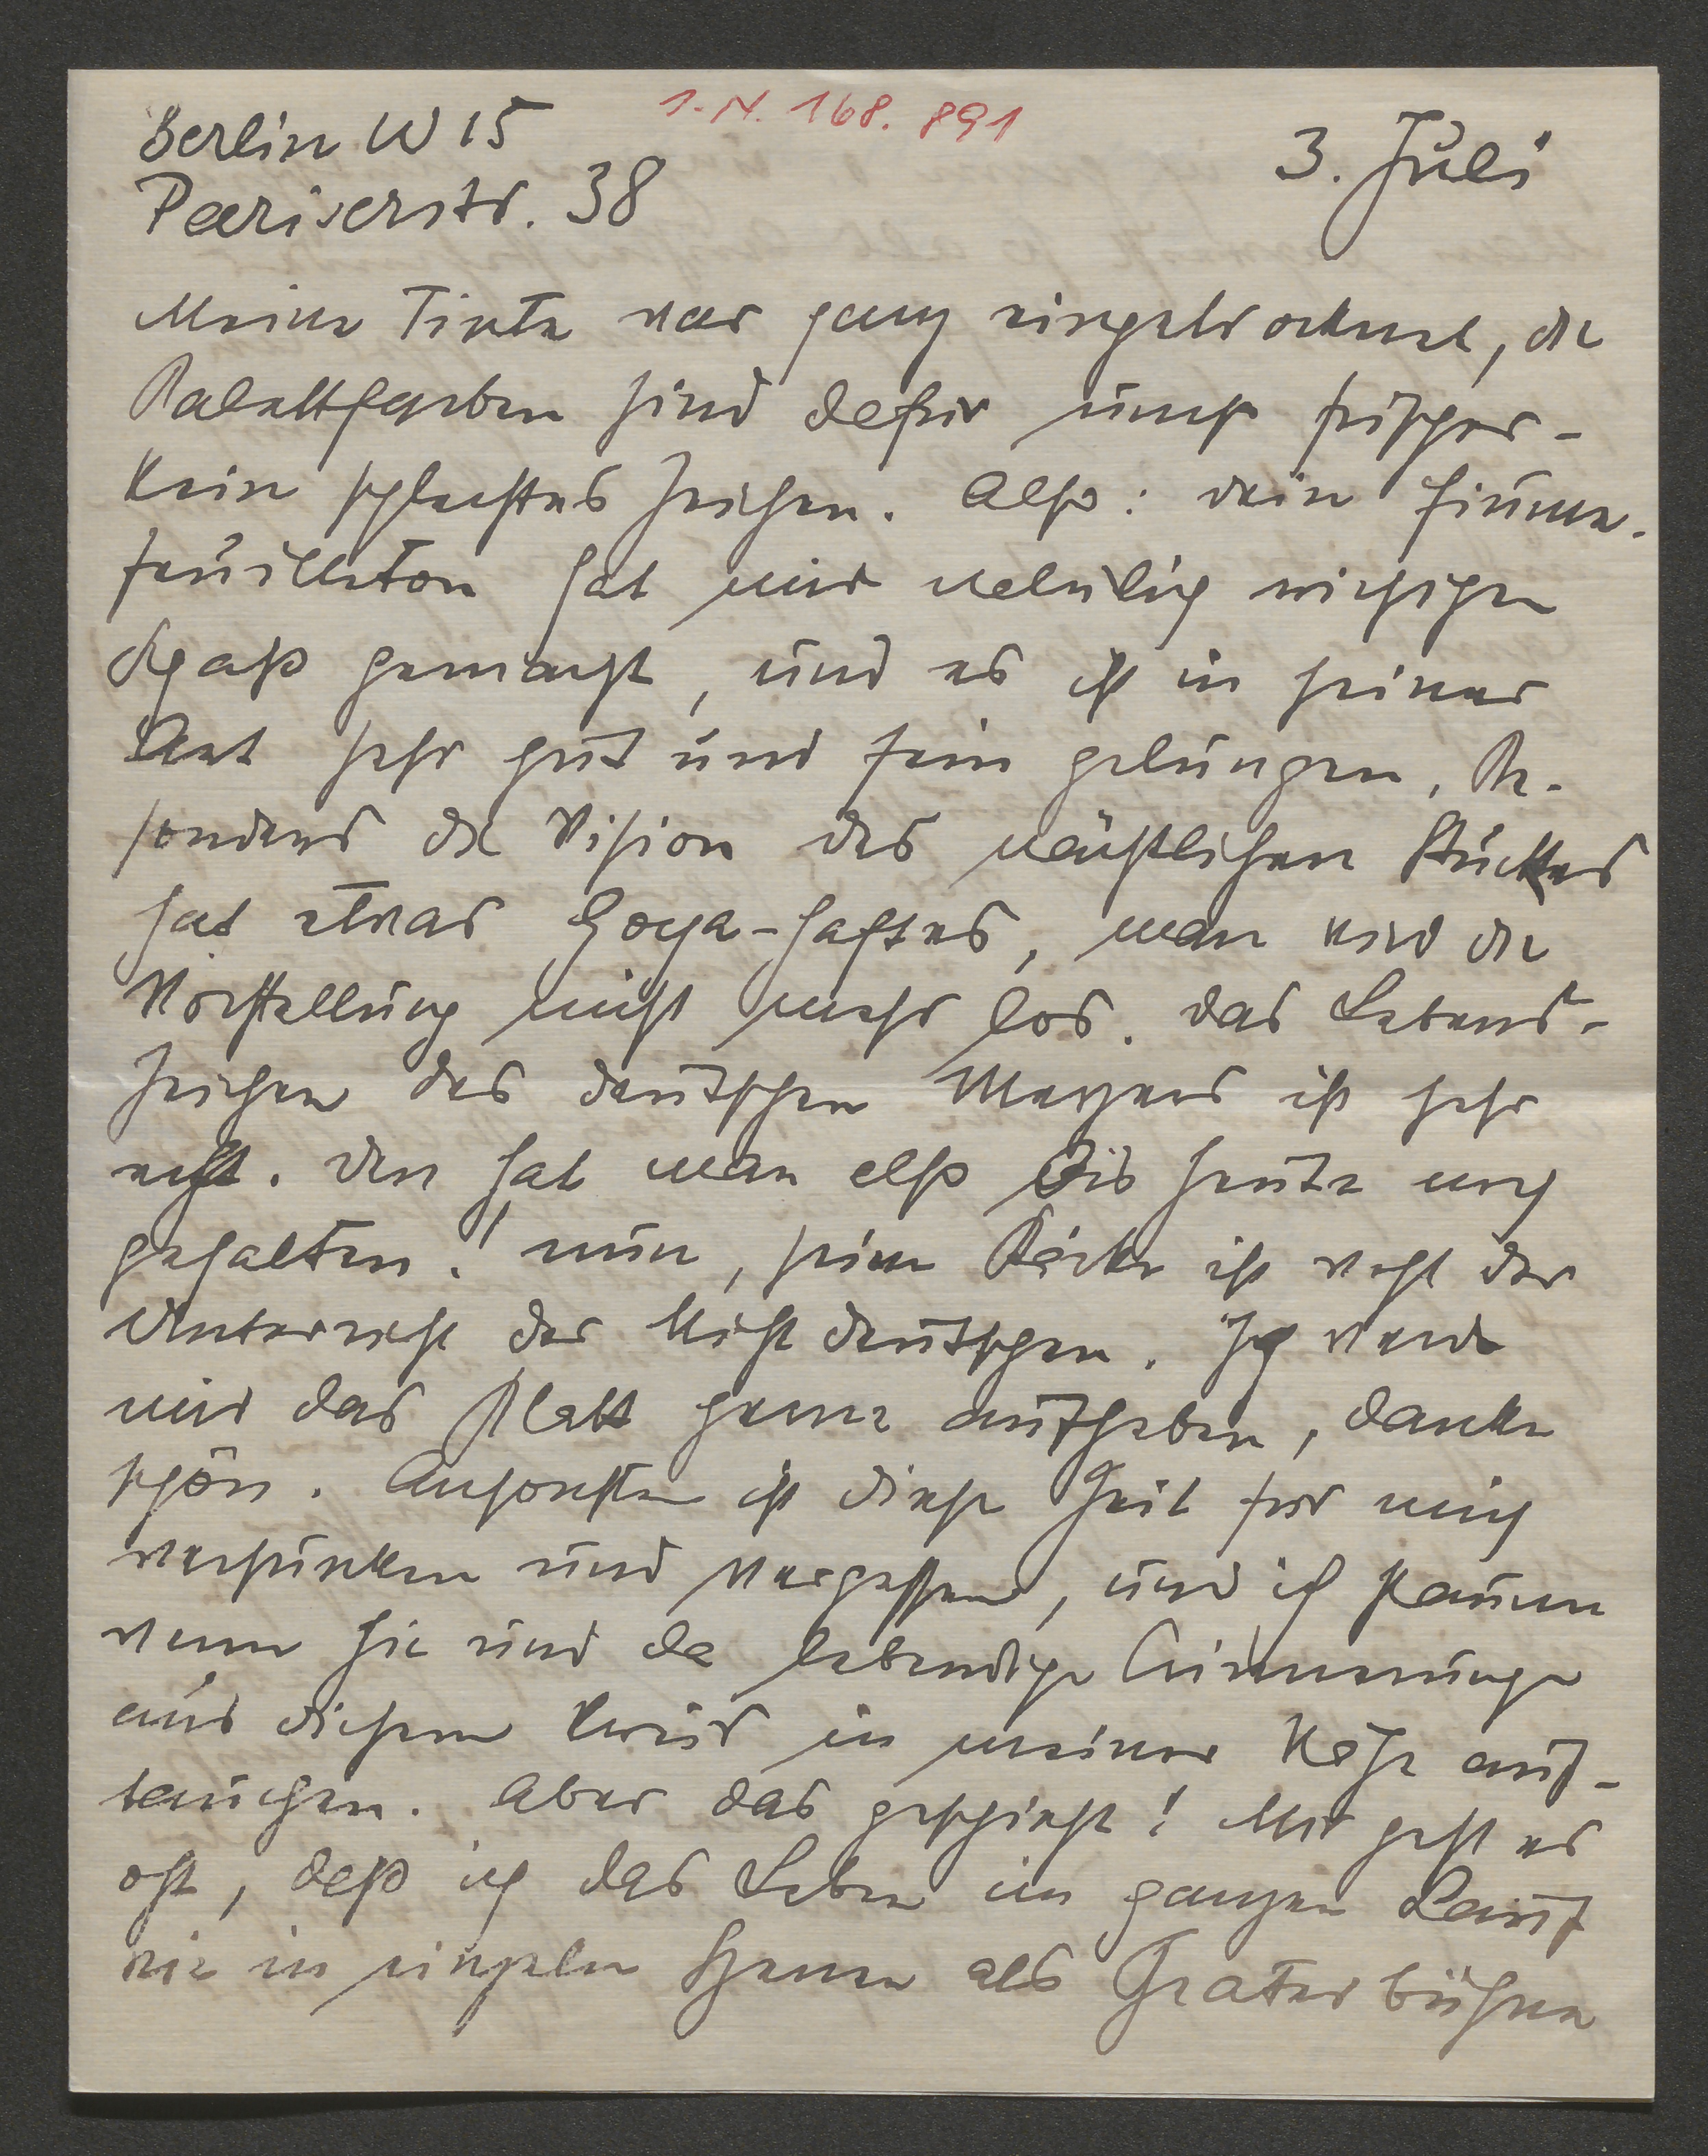 Berlin W 15
I.N. 168.891
3. Juli
Pariserstr. 38
Meine Tinte war ganz eingetrocknet, die
Palettfarben sind dafür umso frischer –
kein schlechtes Zeichen. Also: dein
feuilleton hat mir unbändig
Spaß gemacht, und es ist in seiner
Art sehr gut und fein gelungen. Be-
sonders die Vision des nächtlichen Stückes
hat etwas Goya-haftes, man wird die
Vorstellung nicht mehr los. Das Lebens-
zeichen des deutschen Meyers ist sehr
nett. Den hat man also bis heute noch
gehalten! nun, seine Stärke ist wohl der
Unterricht der Nichtdeutschen. Ich werde
mir das Blatt gerne aufheben, danke
schön. Ansonsten ist diese Zeit für mich
versunken und vergessen, und ich staune
wenn hie und da lebendige Erinnerungen
aus diesem Kreis in meiner Nähe auf-
tauchen. Aber das geschieht! Mir geht es
oft, daß ich das Leben im ganzen Lauf
wie in einzelnen Szenen als Theaterbühne